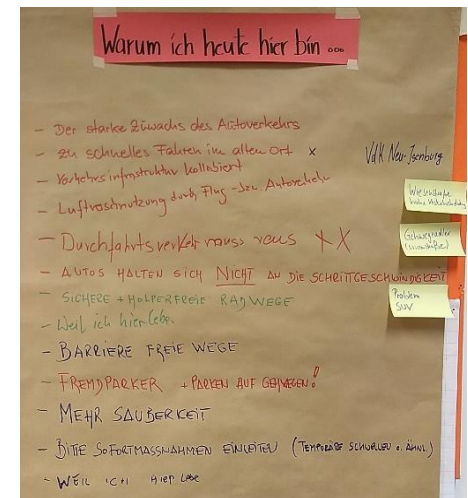 Warum ich heute hier bin ...
- Der starke Zuwachs des Autoverkehrs
- zu schnelles Fahren im alten Ort x
VdK Neu-Isenburg
- Verkehrsinfrastruktur kollabiert
- Luftverschmutzung durch Flug- bzw. Autoverkehr
- Durchfahrtsverkehr muss raus X X
- AUTOS HALTEN SICH NICHT AN DIE SCHRITTGESCHWINDIGKEIT
- SICHERE + HOLPERFREIE RADWEGE
- Weil ich hier lebe.
- BARRIERE FREIE WEGE
- FREMDPARKER + PARKEN AUF GEHWEGEN!
- MEHR SAUBERKEIT
- BITTE SOFORTMASSNAHMEN EINLEITEN (TEMPORÄRE SCHWELLEN o. ÄHNL)
- WEIL ICH HIER LEBE
Gehwegradler
Problem
SUV